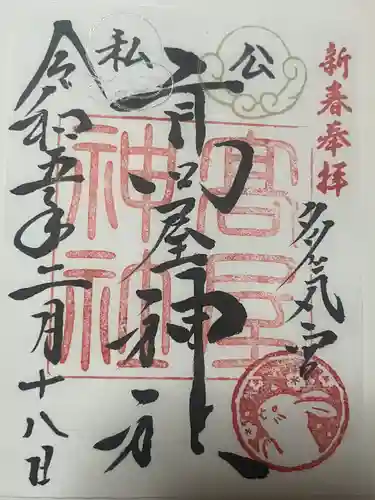 新春奉拝
多気宮
公
私
高屋神社
高屋神社
令和五年二月十八日